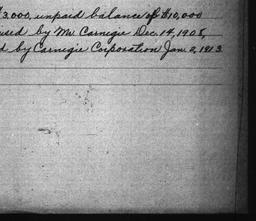 $3,000, unpaid balance of $10,000
by Mr Carnegie Dec. 14, 1908,
by Carnegie Corporation Jan. 2, 1913